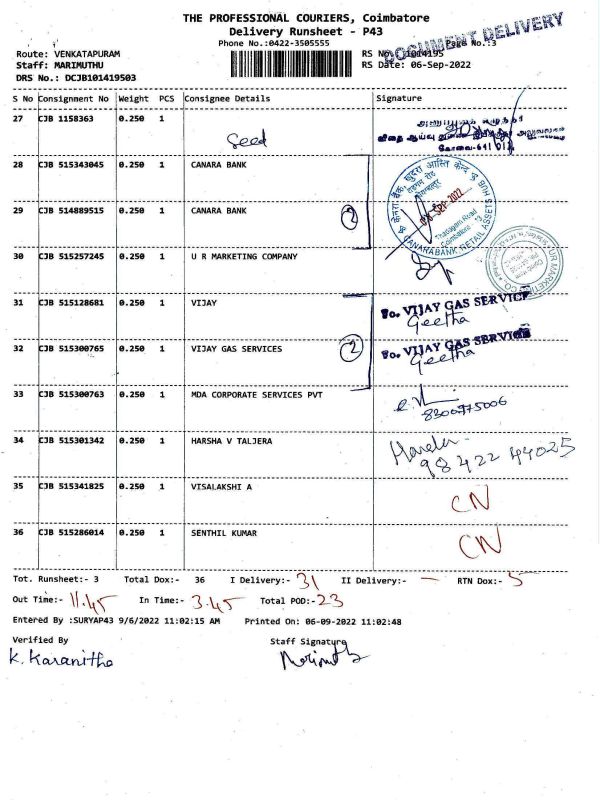 THE PROFESSIONAL COURIERS, Coimbatore
Delivery Runsheet - P43
DOCUMENT DELIVERY
Phone No.:0422-3505555
Page No.:3
Route: VENKATAPURAM
RS No.: 1014195
Staff: MARIMUTHU
RS Date: 06-Sep-2022
DRS No.: DCJB101419503
S No Consignment No Weight PCS Consignee Details Signature
27 CJB 1158363 0.250 1
Seed
28 CJB 515343045 0.250 1 CANARA BANK
29 CJB 514889515 0.250 1 CANARA BANK
2
Thadagam Road
CANARABANK RETAIL ASSETS HUB
30 CJB 515257245 0.250 1 U R MARKETING COMPANY
31 CJB 515128681 0.250 1 VIJAY
VIJAY GAS SERVICE
Geetha
32 CJB 515300765 0.250 1 VIJAY GAS SERVICES
2
VIJAY GAS SERVICE
Geetha
33 CJB 515300763 0.250 1 MDA CORPORATE SERVICES PVT
34 CJB 515301342 0.250 1 HARSHA V TALJERA
98422 44025
35 CJB 515341825 0.250 1 VISALAKSHI A
CN
36 CJB 515286014 0.250 1 SENTHIL KUMAR
CN
Tot. Runsheet:- 3 Total Dox:- 36 I Delivery:- 31 II Delivery:- — RTN Dox:- 5
Out Time:- 11.45 In Time:- 3.45 Total POD:- 23
Entered By :SURYAP43 9/6/2022 11:02:15 AM Printed On: 06-09-2022 11:02:48
Verified By Staff Signature
K. Karanitha